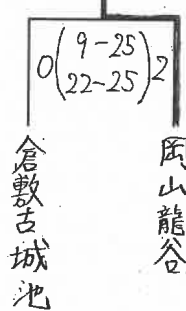 0(9-25
22-25)2
倉敷古城池
岡山龍谷